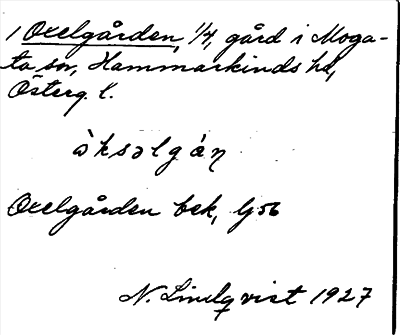 1 Oxelgården, 1/4, gård i Moga-
ta sn, Hammarkinds hd,
Österg. l.
òksəlgán
Oxelgården bek, Gsb
N. Lindqvist 1927